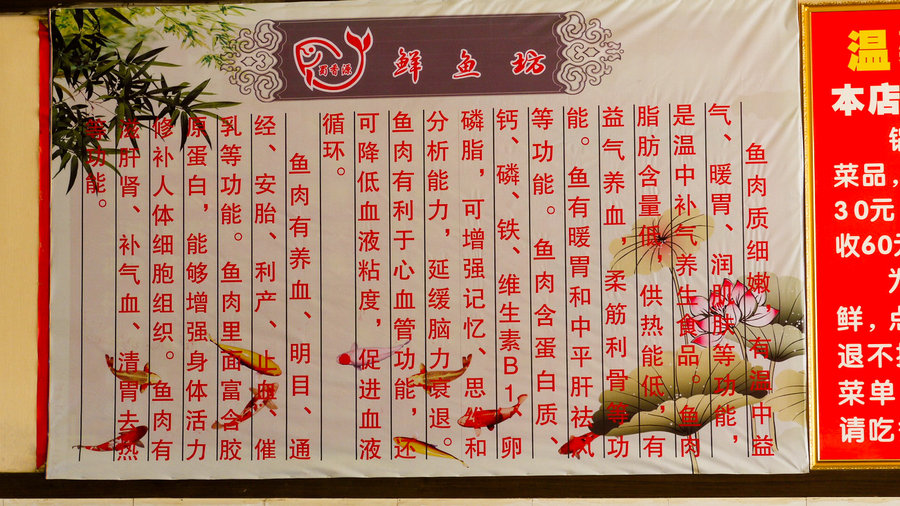 蜀香源
鲜鱼坊
鱼肉质细嫩，有温中益
气、暖胃、润肌肤等功能，
是温中补气养生食品。鱼肉
脂肪含量低，供热能低，有
益气养血，柔筋利骨等功
能。鱼有暖胃和中平肝祛风
等功能。鱼肉含蛋白质、
钙、磷、铁、维生素B1、卵
磷脂，可增强记忆、思维和
分析能力，延缓脑力衰退。
鱼肉有利于心血管功能，还
可降低血液粘度，促进血液
循环。
鱼肉有养血、明目、通
经、安胎、利产、止血、催
乳等功能。鱼肉里面富含胶
原蛋白，能够增强身体活力
修补人体细胞组织。鱼肉有
滋肝肾、补气血、清胃去热
等功能。
温
本店
菜品，
30元
收60元
为
鲜，点
退不
菜单
请吃